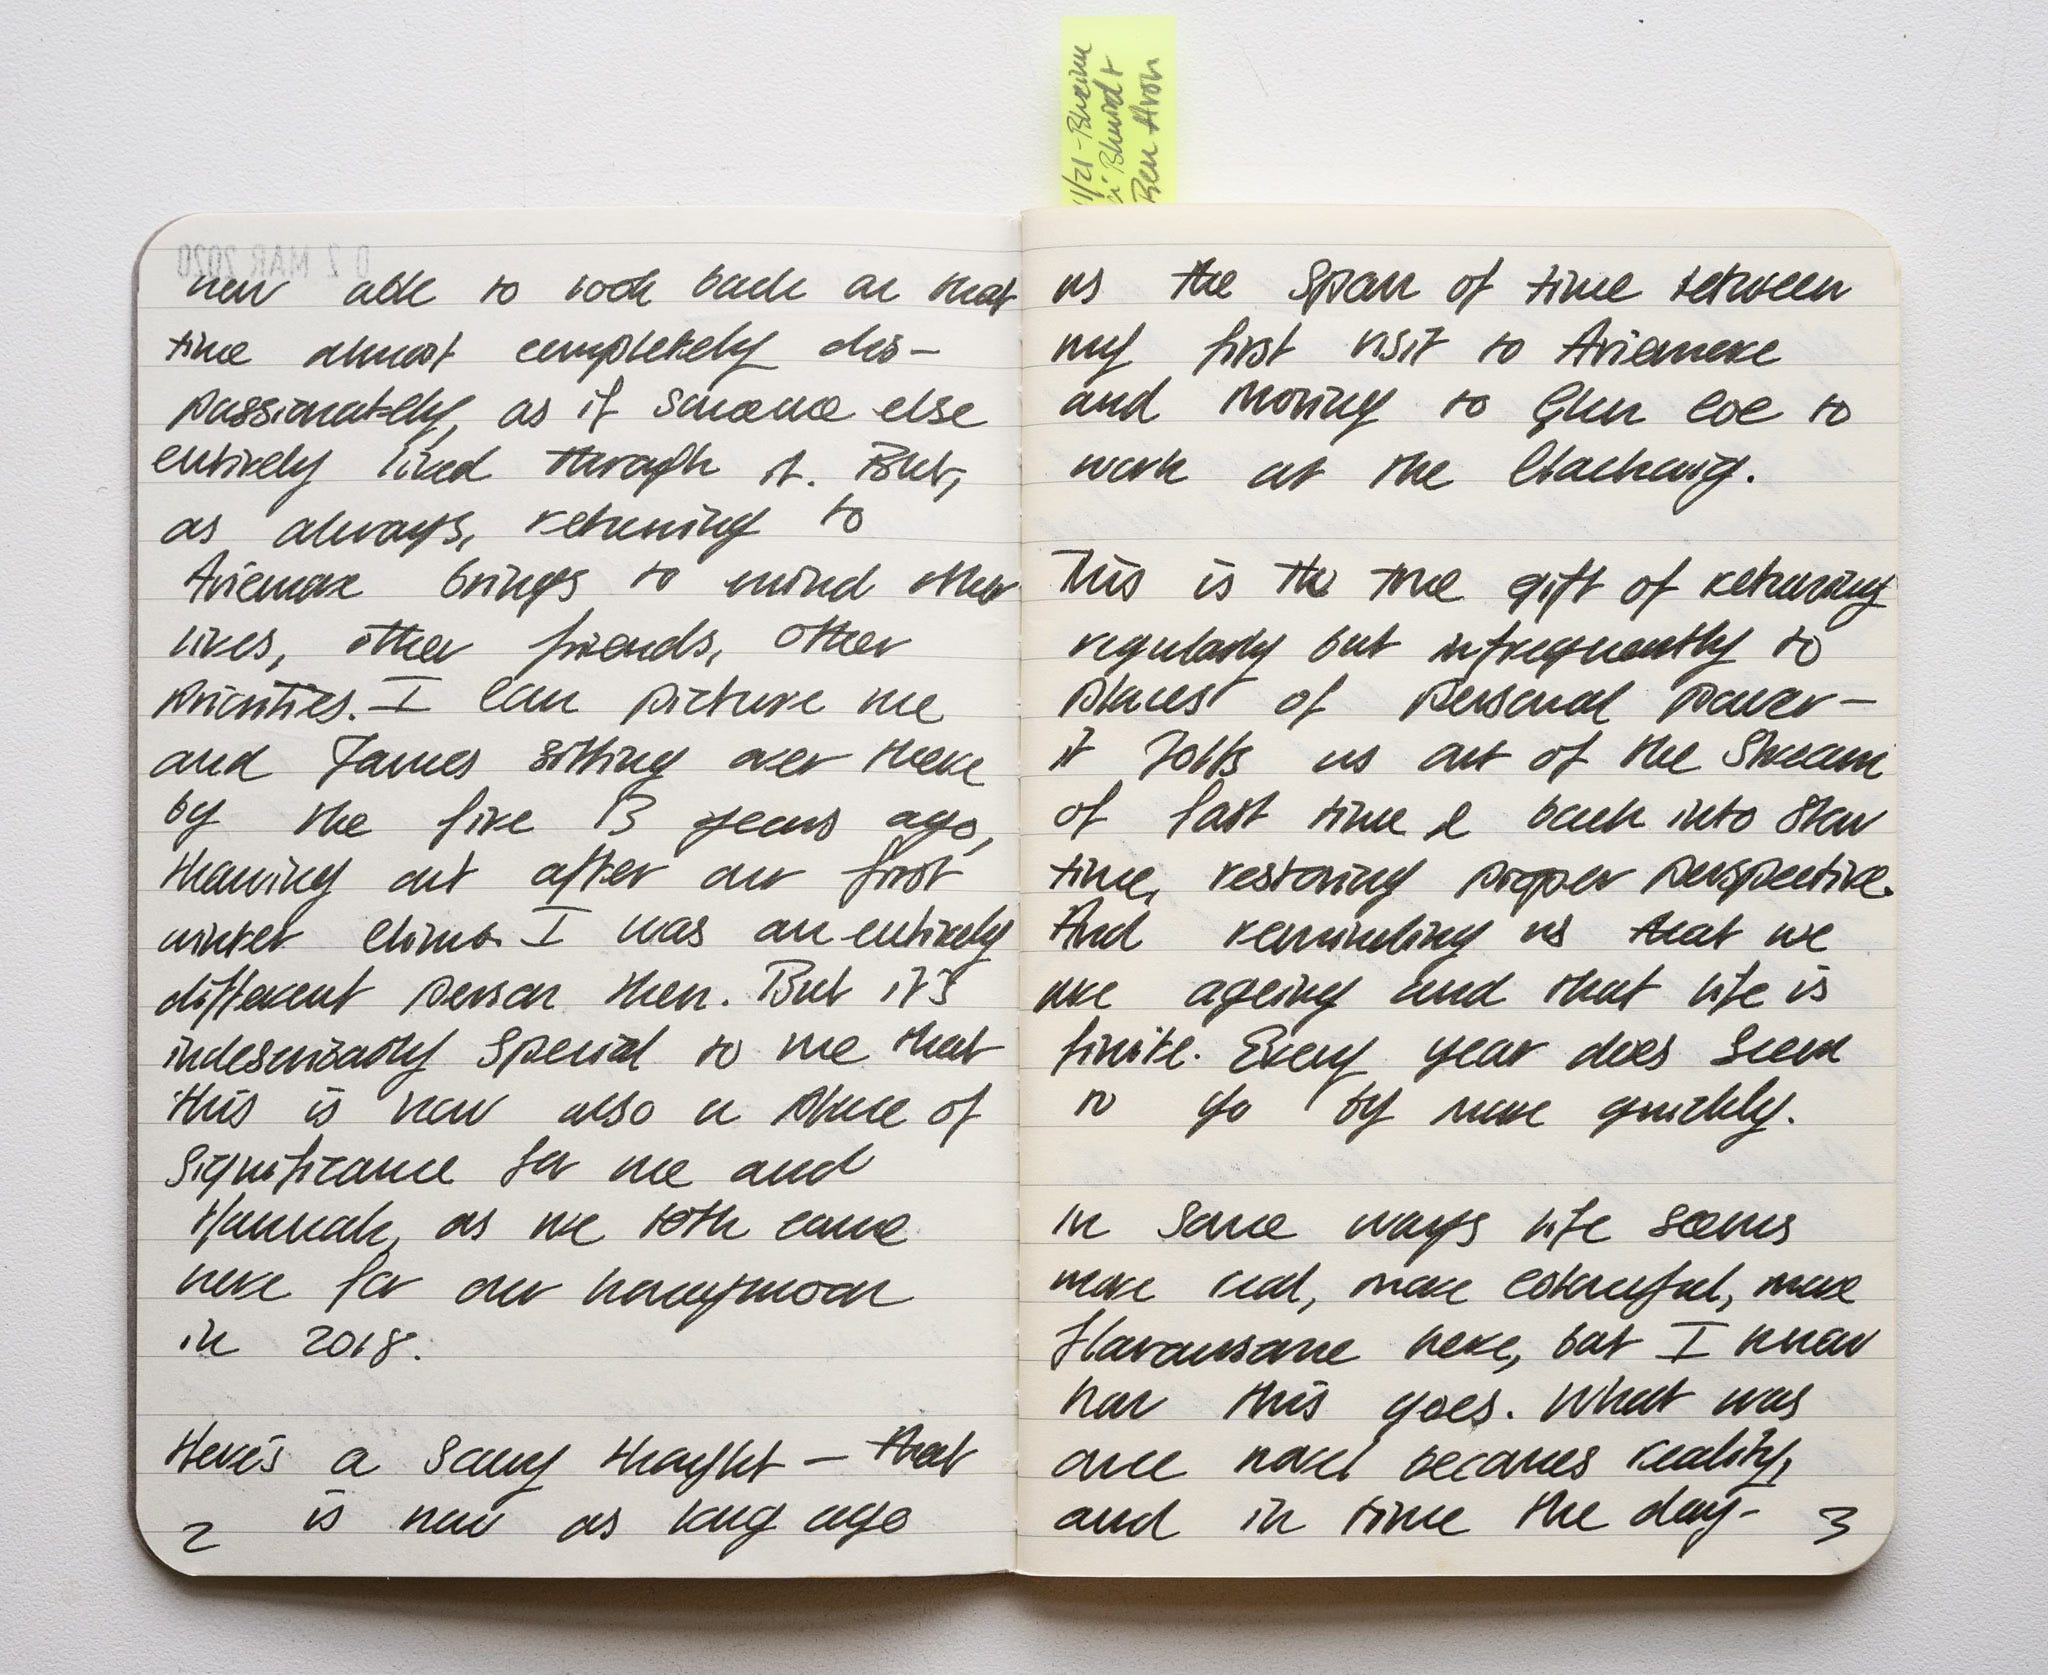 1/21 - Bheinn
a' Bhuird +
Ben Avon
02 MAR 2020
now able to look back on that
time almost completely dis-
passionately, as if someone else
entirely lived through it. But,
as always, returning to
Aviemore brings to mind other
lives, other friends, other
priorities. I can picture me
and James sitting over there
by the fire 13 years ago,
thawing out after our first
winter climb. I was an entirely
different person then. But it's
indescribably special to me that
this is now also a place of
significance for me and
Hannah, as we both came
here for our honeymoon
in 2018.
Here's a scary thought – that
is now as long ago
2
as the span of time between
my first visit to Aviemore
and moving to Glen Coe to
work at the Clachaig.
This is the true gift of returning
regularly but infrequently to
places of personal power –
it jolts us out of the stream
of fast time & back into slow
time, restoring proper perspective.
And reminding us that we
are ageing and that life is
finite. Every year does seem
to go by more quickly.
In some ways life seems
more real, more colourful, more
flavoursome here, but I know
how this goes. What was
once novel becomes reality,
and in time the day-
3